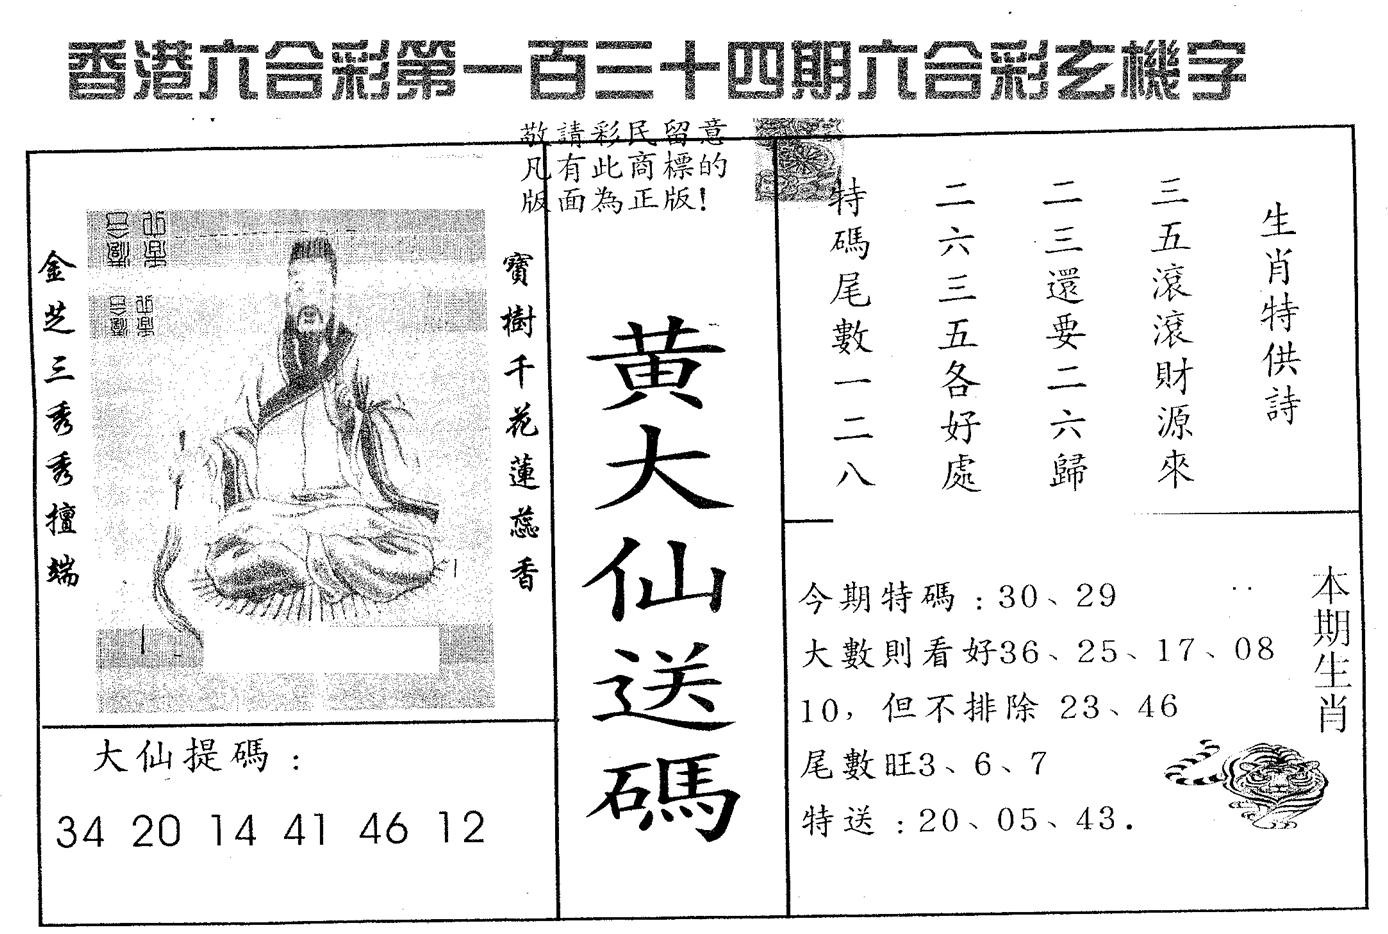 香港六合彩第一百三十四期六合彩玄機字
敬請彩民留意
凡有此商標的
版面為正版!
寶樹千花蓮蕊香
金芝三秀秀擅端
大仙提碼:
34 20 14 41 46 12
黃大仙送碼
生肖特供詩
三五滾滾財源來
二三還要二六歸
二六三五各好處
特碼尾數一二八
今期特碼:30、29
大數則看好36、25、17、08
10,但不排除 23、46
尾數旺3、6、7
特送:20、05、43.
本期生肖